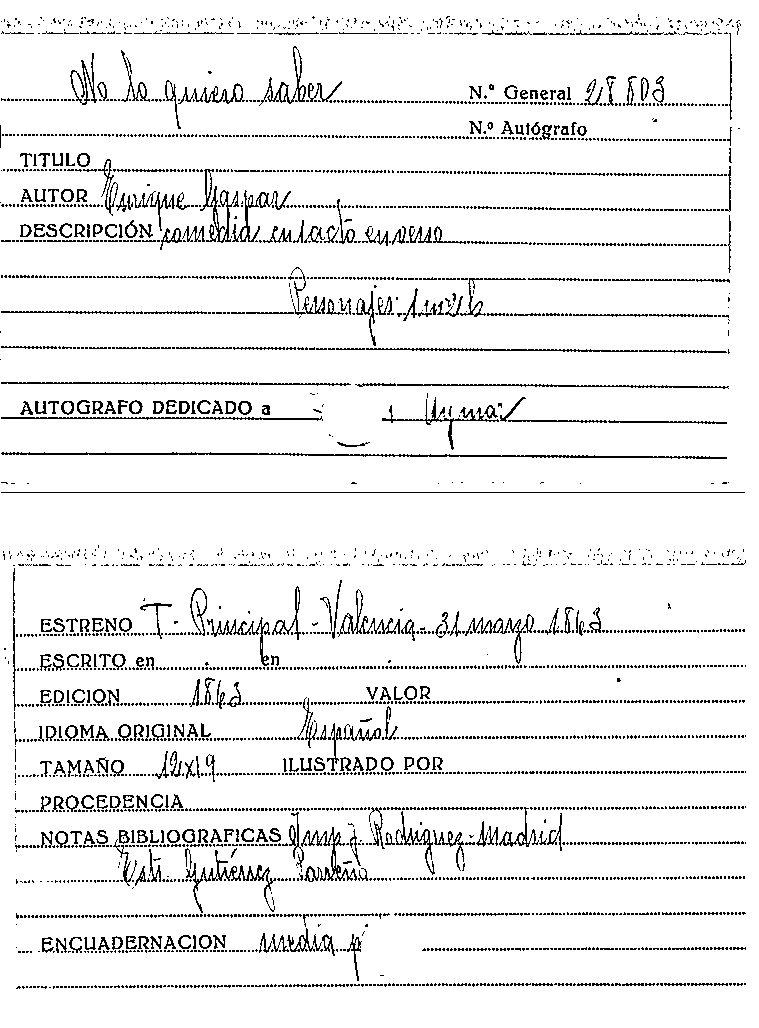 No lo quiero saber
N.º General 28803
N.º Autógrafo
TITULO
AUTOR Enrique Gaspar
DESCRIPCIÓN comedia en 1 acto en verso
Personajes: 1 m 2 h
AUTOGRAFO DEDICADO a Aymar
ESTRENO T. Principal - Valencia - 31 marzo 1863
ESCRITO en en
EDICION 1863 VALOR
IDIOMA ORIGINAL Español
TAMAÑO 12x19 ILUSTRADO POR
PROCEDENCIA
NOTAS BIBLIOGRAFICAS Imp J. Rodriguez - Madrid
Gutiérrez
ENCUADERNACION media p